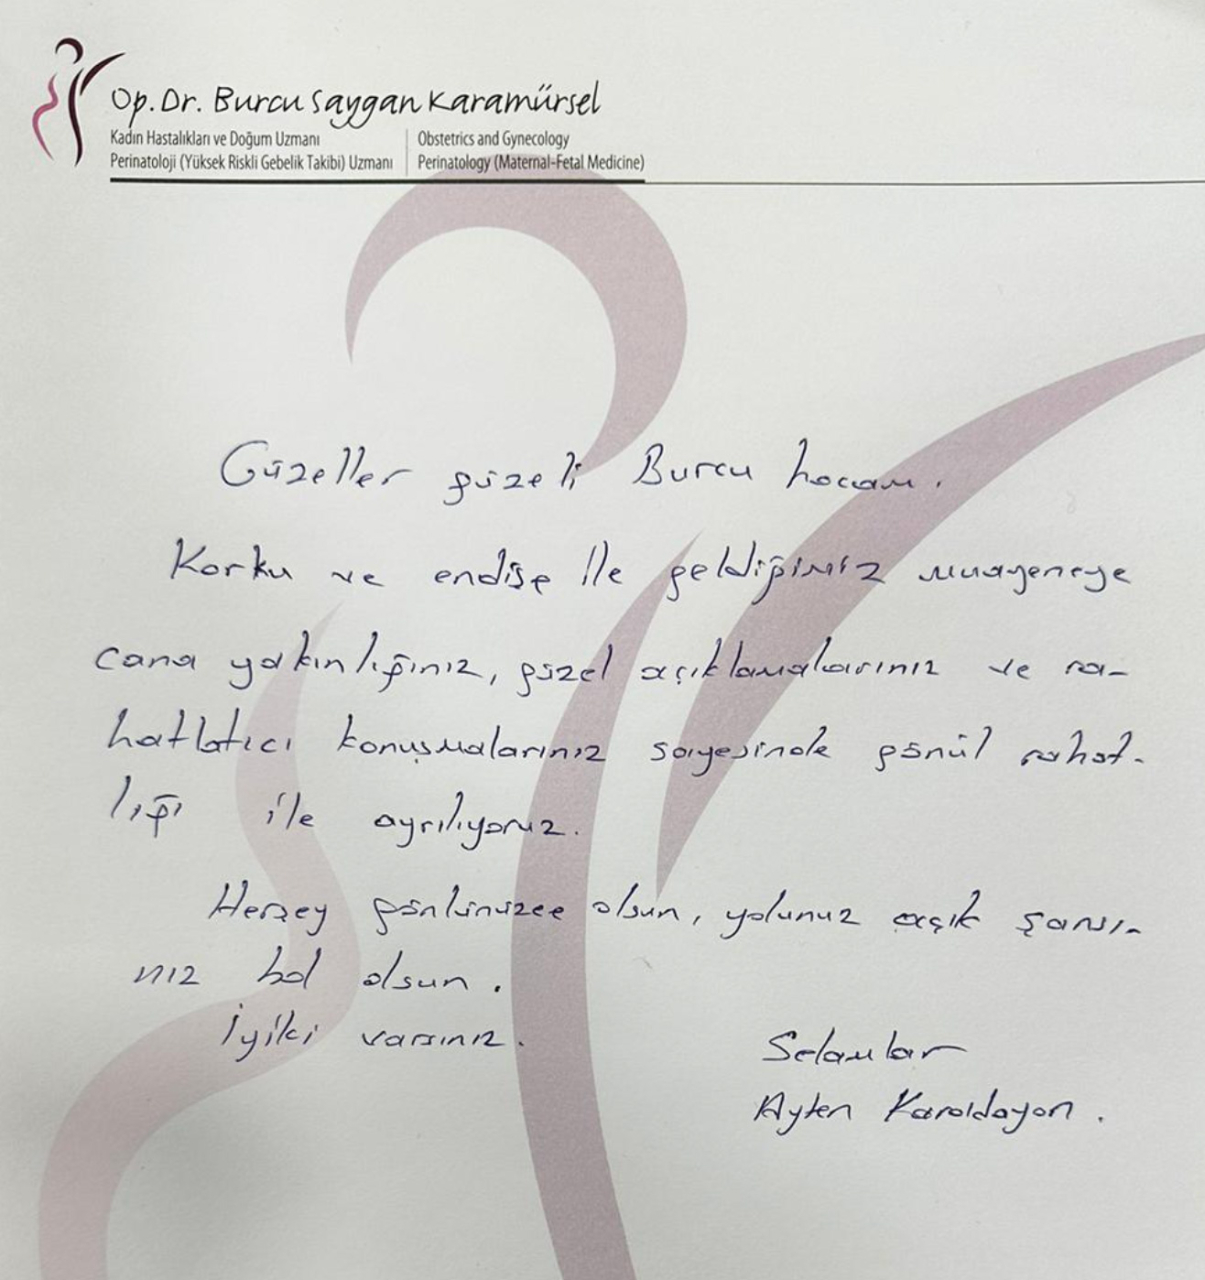 Op. Dr. Burcu Saygan Karamürsel
Kadın Hastalıkları ve Doğum Uzmanı
Perinatoloji (Yüksek Riskli Gebelik Takibi) Uzmanı
Obstetrics and Gynecology
Perinatology (Maternal-Fetal Medicine)
Güzeller güzeli Burcu hocam.
Korku ve endişe ile geldiğimiz muayeneye
cana yakınlığınız, güzel açıklamalarınız ve ra-
hatlatıcı konuşmalarınız sayesinde gönül rahat-
lığı ile ayrılıyoruz.
Herşey gönlünüzce olsun, yolunuz açık şansı-
nız bol olsun.
İyiki varsınız.
Selamlar
Ayten